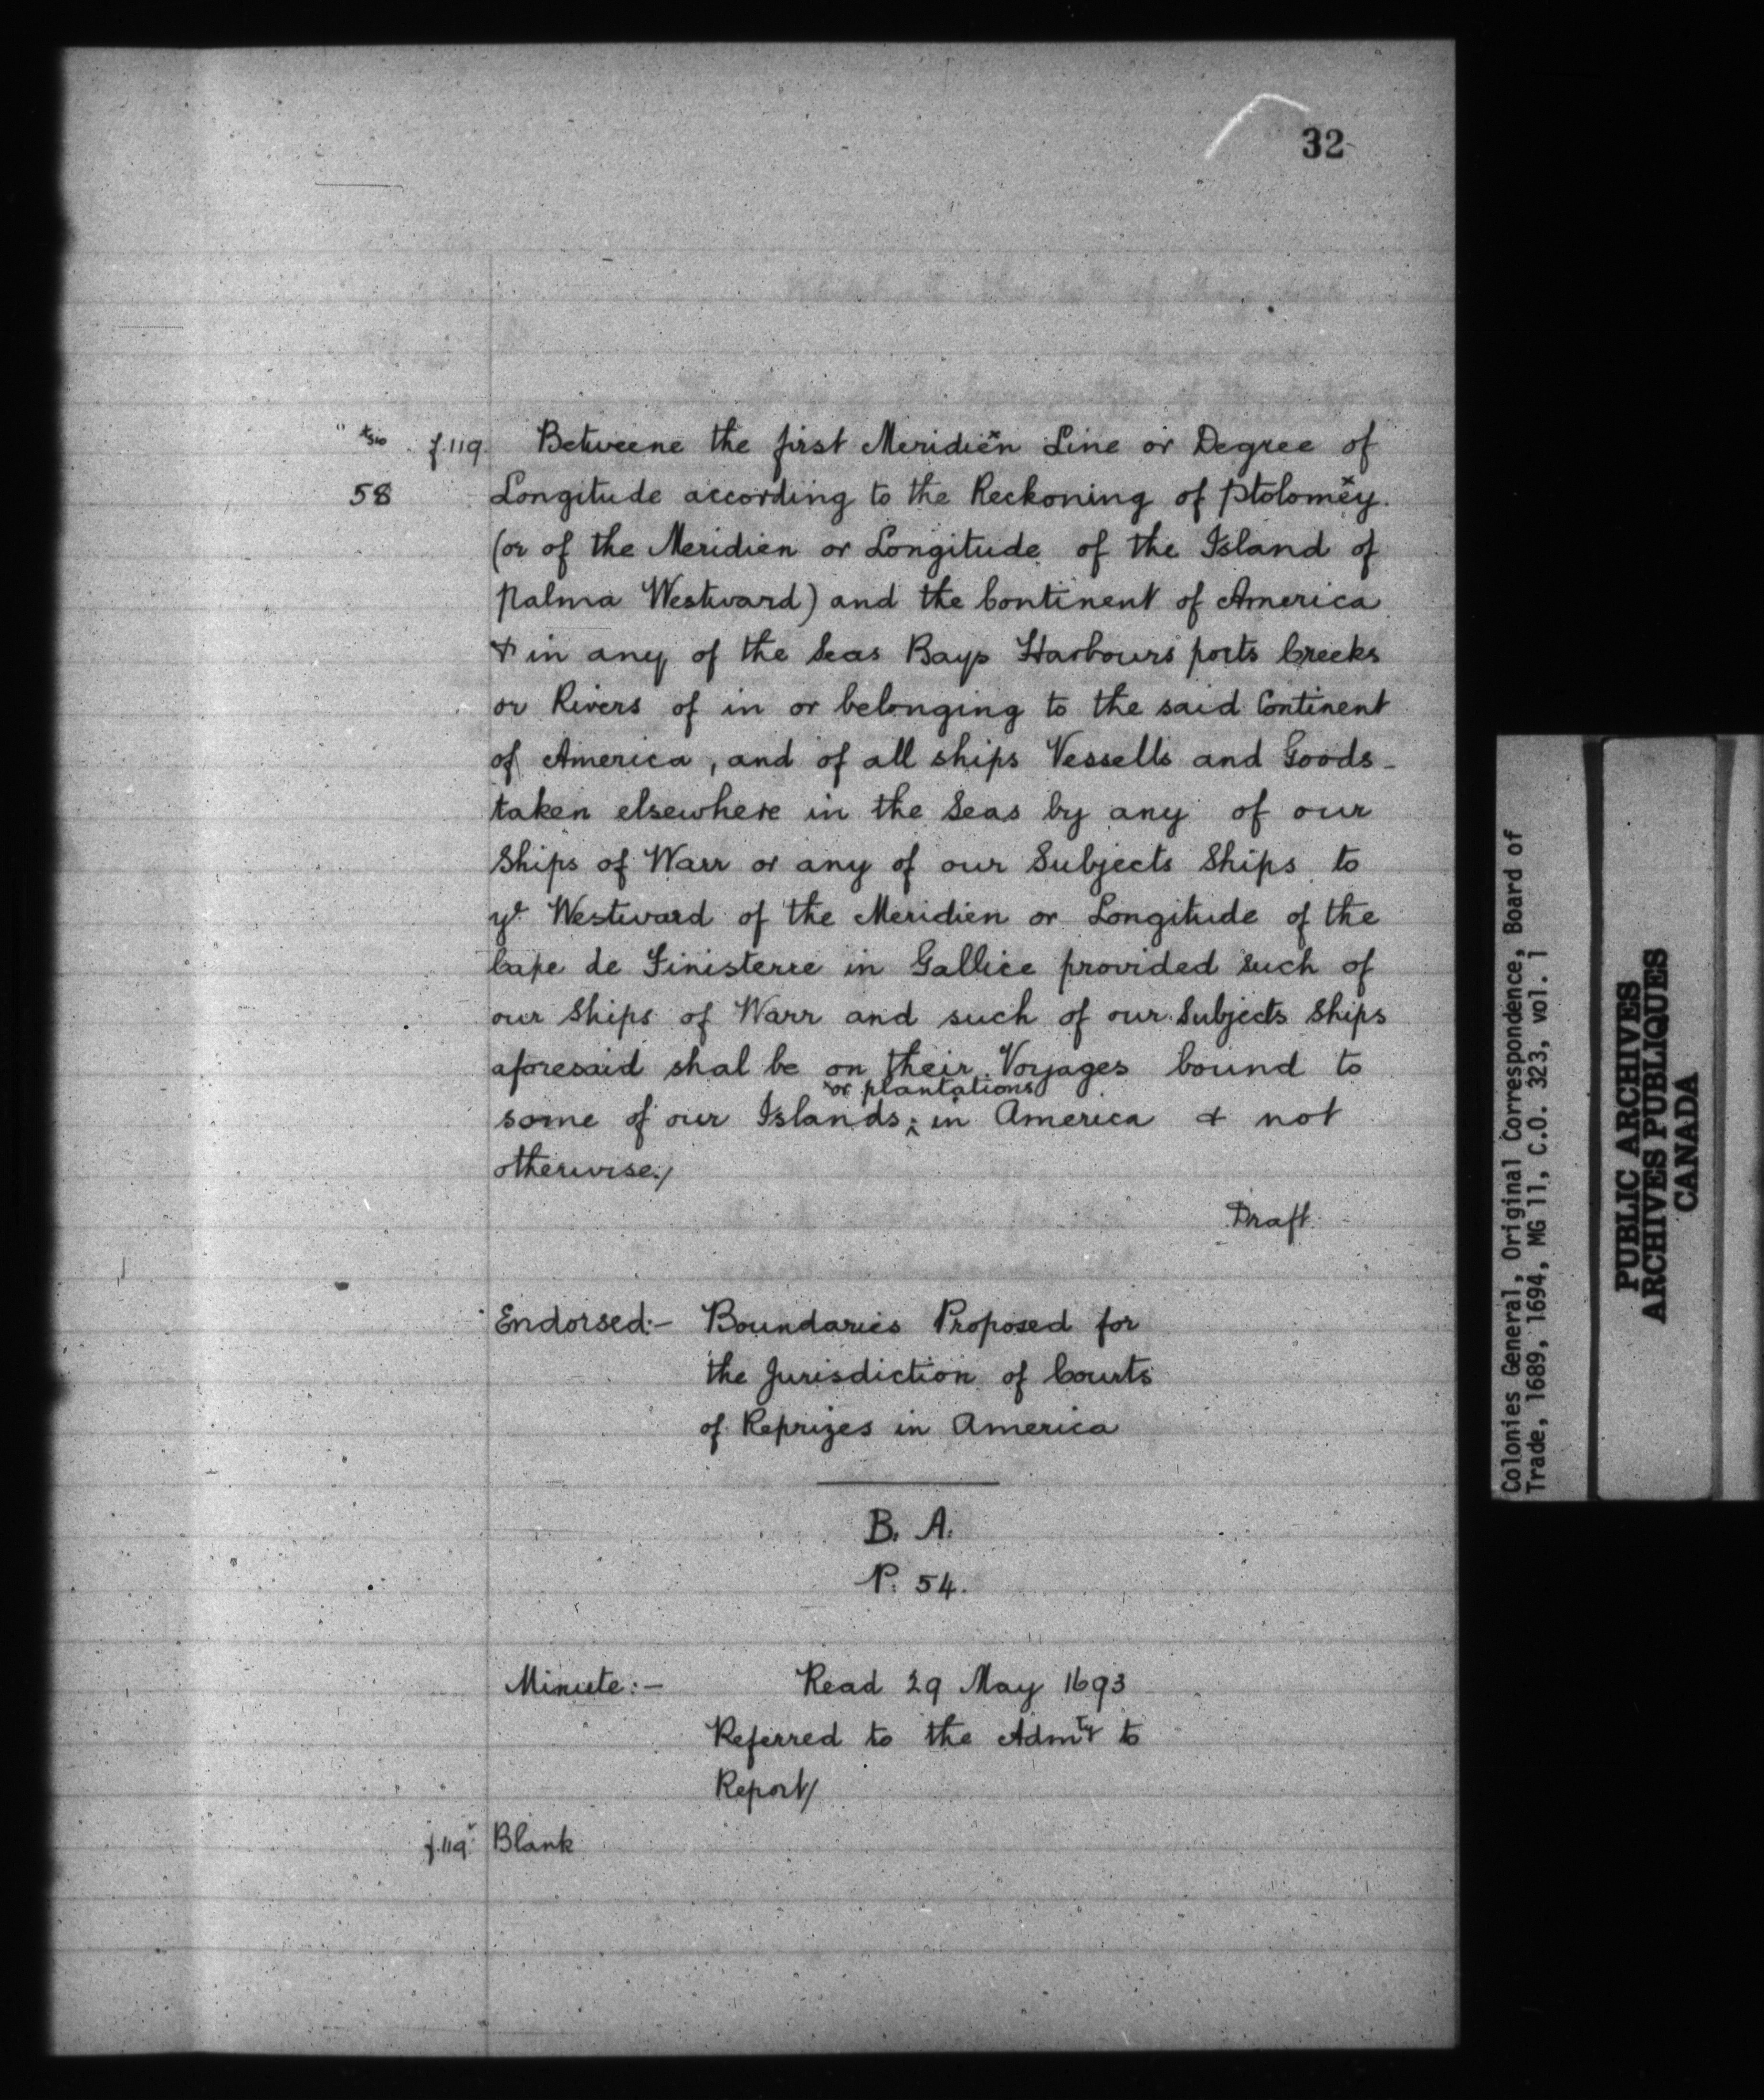 32
x sic f.119. Betweene the first Meridiẽn Line or Degree of
58 Longitude according to the Reckoning of Ptolomẽy.
(or of the Meridien or Longitude of the Island of
Palma Westward) and the Continent of America
& in any of the Seas Bays Harbours ports Creeks
or Rivers of in or belonging to the said Continent
of America, and of all ships Vessells and Goods -
taken elsewhere in the Seas by any of our
Ships of Warr or any of our Subjects Ships to
ye Westward of the Meridien or Longitude of the
Cape de Finisterre in Gallice provided such of
our Ships of Warr and such of our Subjects Ships
aforesaid shal be on their Voyages bound to
or plantations
some of our Islands ; in America & not
otherwise./
Draft.
Endorsed:- Boundaries Proposed for
the Jurisdiction of Courts
of Reprizes in America
B. A.
P. 54.
Minute:- Read 29 May 1693
Referred to the Admty to
Report/
f.119v Blank
Colonies General, Original Correspondence, Board of
Trade, 1689, 1694, MG 11, C.O. 323, vol. 1
PUBLIC ARCHIVES
ARCHIVES PUBLIQUES
CANADA